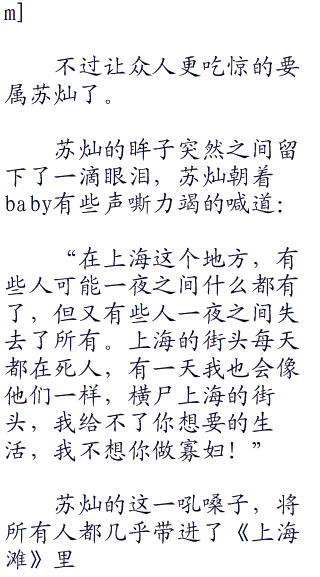 m]
不过让众人更吃惊的要
属苏灿了。
苏灿的眸子突然之间留
下了一滴眼泪，苏灿朝着
baby有些声嘶力竭的喊道：
“在上海这个地方，有
些人可能一夜之间什么都有
了，但又有些人一夜之间失
去了所有。上海的街头每天
都在死人，有一天我也会像
他们一样，横尸上海的街
头，我给不了你想要的生
活，我不想你做寡妇！”
苏灿的这一吼嗓子，将
所有人都几乎带进了《上海
滩》里